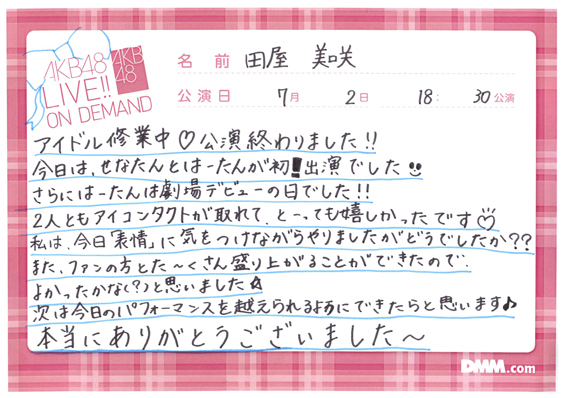 AKB48
LIVE!!
ON DEMAND
AKB
48
名前 田屋 美咲
公演日 7月 2日 18: 30公演
アイドル修業中♡公演終わりました!!
今日は、せなたんとはーたんが初!出演でした
さらにはーたんは劇場デビューの日でした!!
2人ともアイコンタクトが取れて、とーっても嬉しかったです♡
私は、今日「表情」に気をつけながらやりましたがどうでしたか??
また、ファンの方とた〜くさん盛り上がることができたので、
よかったかな(?)と思いました☆
次は今日のパフォーマンスを越えられるようにできたらと思います♪
本当にありがとうございました〜
DMM.com